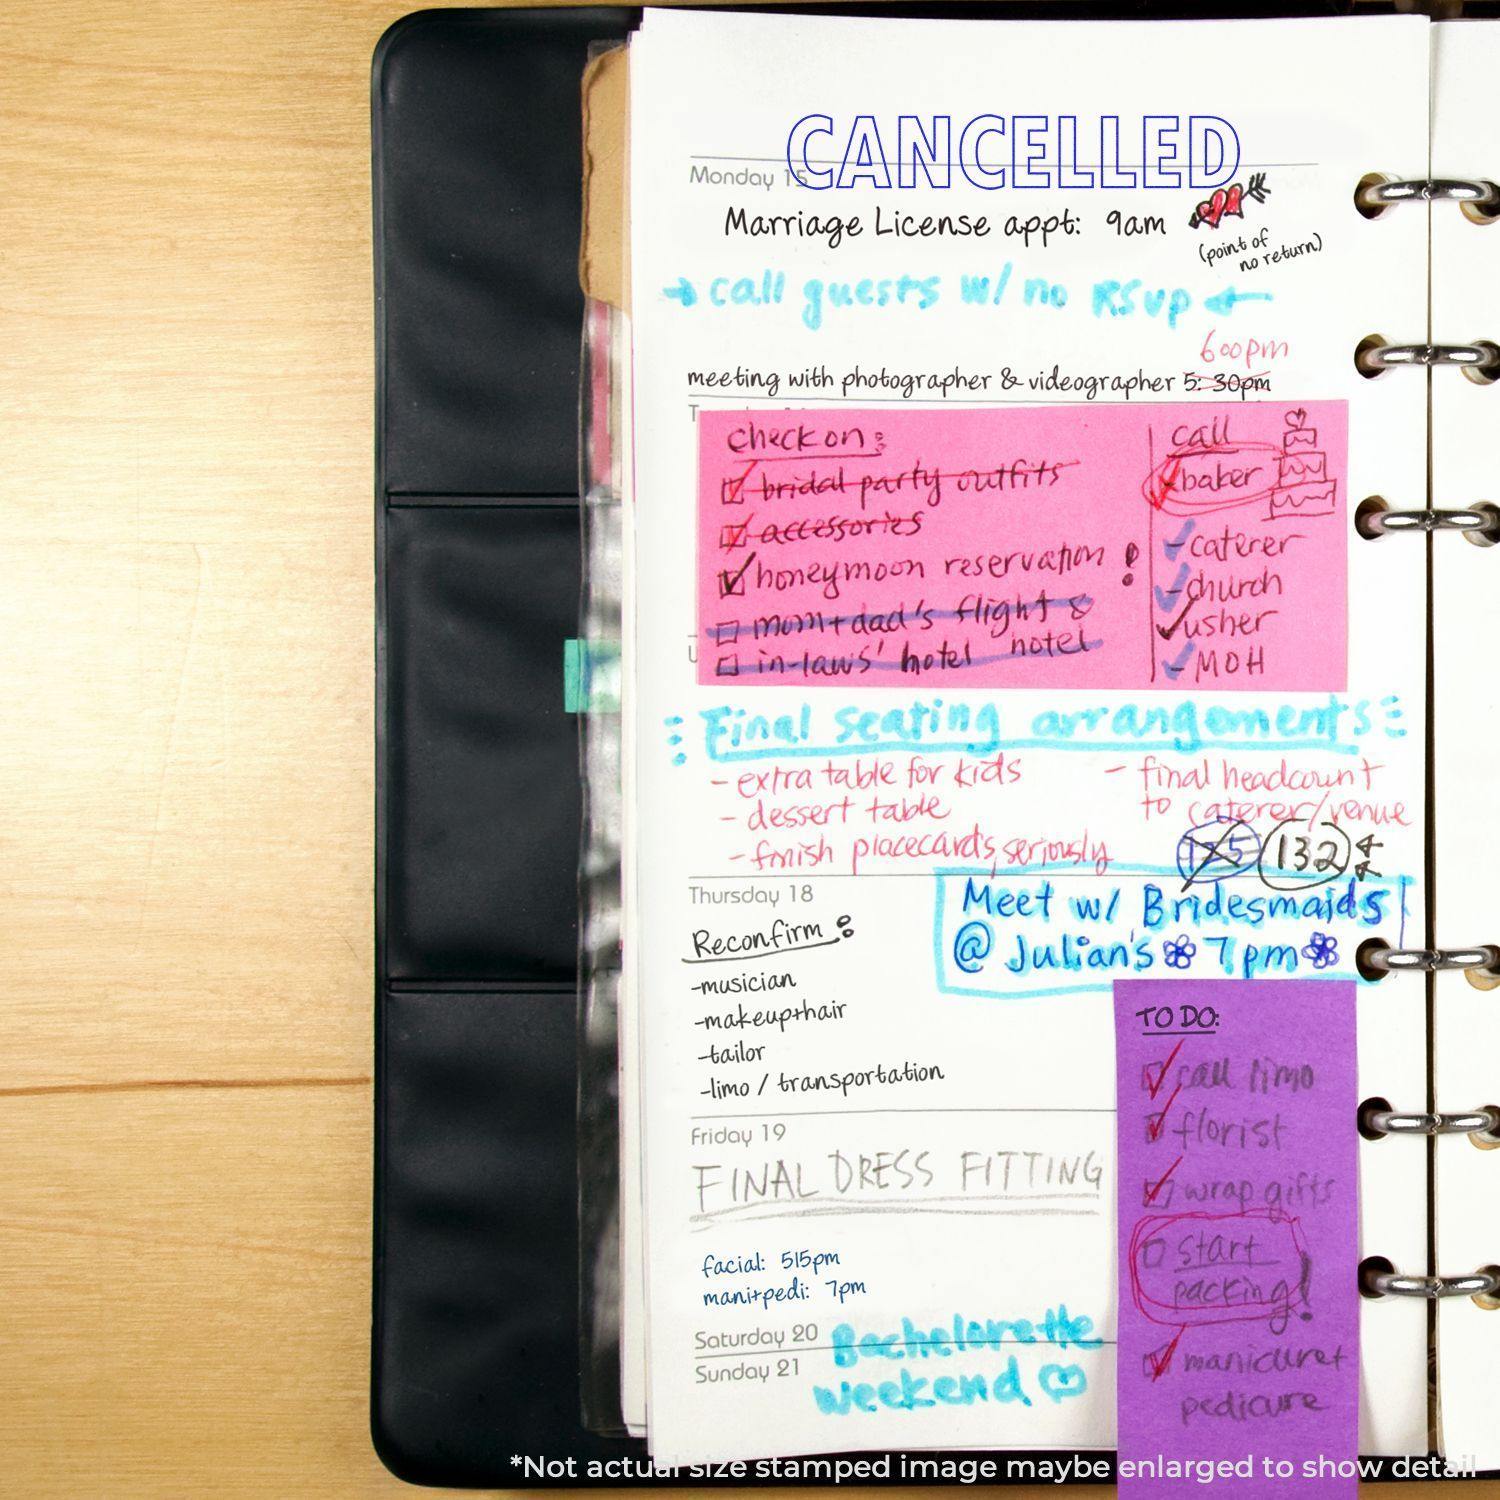 CANCELLED
Monday 15
Marriage License appt: 9am
(point of
no return)
call guests w/ no RSVP
600pm
meeting with photographer & videographer 5:30pm
check on:
bridal party outfits
accessories
honeymoon reservation !
mom+dad's flight &
hotel
in-laws' hotel
call
-baker
-caterer
-church
usher
-MOH
Final seating arrangements
- extra table for kids
- dessert table
- finish placecards, seriously
- final headcount
to caterer/venue
125 132
Thursday 18
Reconfirm:
-musician
-makeup+hair
-tailor
-limo / transportation
Meet w/ Bridesmaids
@ Julian's 7pm
TO DO:
call limo
florist
wrap gifts
start
packing!
manicure+
pedicure
Friday 19
FINAL DRESS FITTING
facial: 515pm
mani+pedi: 7pm
Saturday 20
Sunday 21
Bachelorette
weekend
*Not actual size stamped image maybe enlarged to show detail